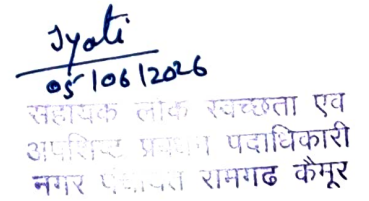 Jyoti
05/06/2026
सहायक लोक स्वच्छता एव
अपशिष्ट प्रबंधन पदाधिकारी
नगर पंचायत रामगढ कैमूर